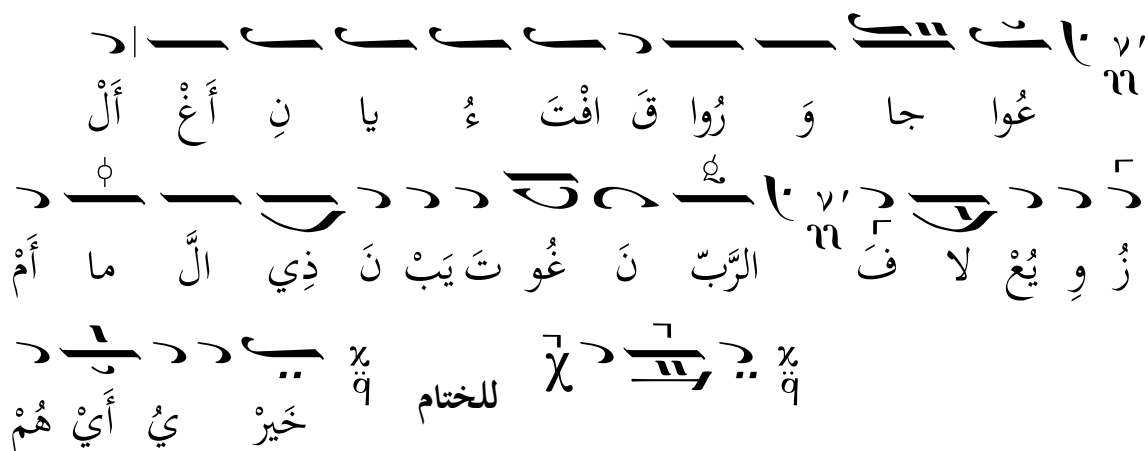 أَلْ أَغْ نِ يا ءُ افْتَ قَ رُوا وَ جا عُوا
أَمْ ما الَّ ذِي نَ يَبْ تَ غُو نَ الرَّبّ فَ لا يُعْ وِ زُ
هُمْ أَيْ يُ خَيرْ للختام